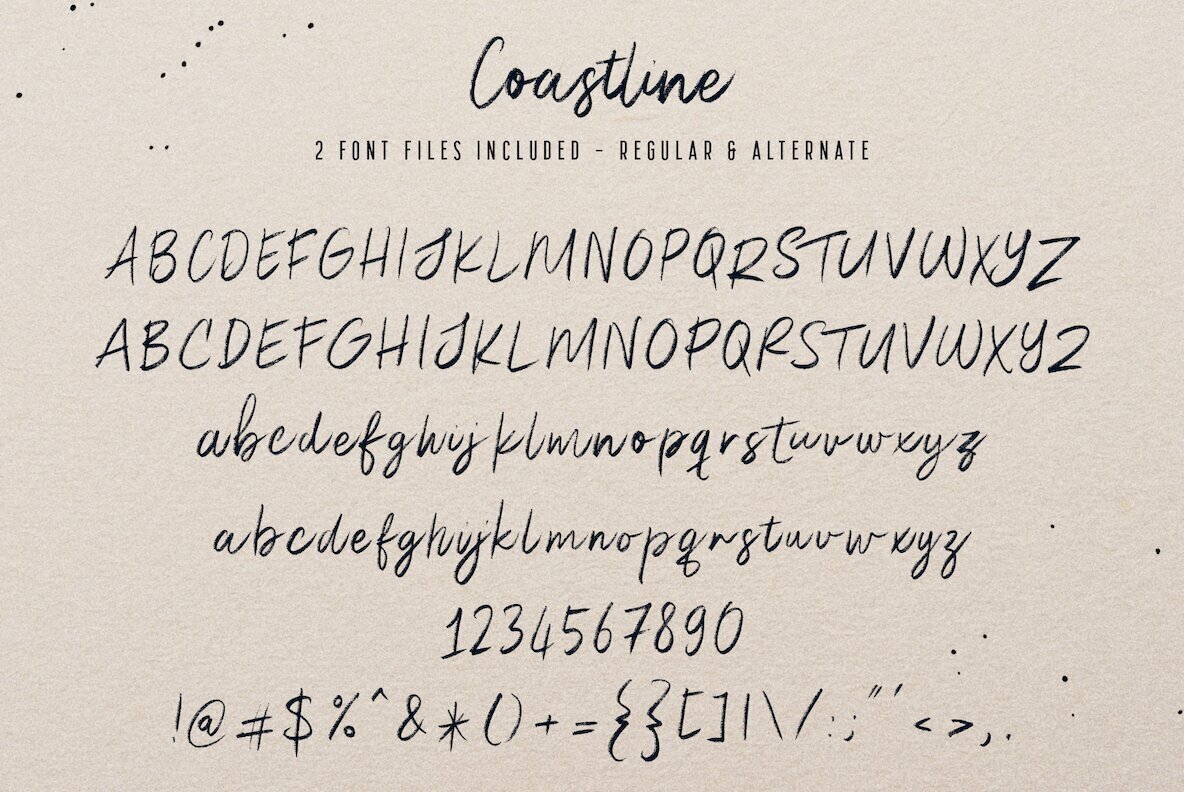 Coastline
2 FONT FILES INCLUDED - REGULAR & ALTERNATE
ABCDEFGHIJKLMNOPQRSTUVWXYZ
ABCDEFGHIJKLMNOPQRSTUVWXYZ
abcdefghijklmnopqrstuvwxyz
abcdefghijklmnopqrstuvwxyz
1234567890
!@#$%^&*()+={}[]|\/:;"'<>,.